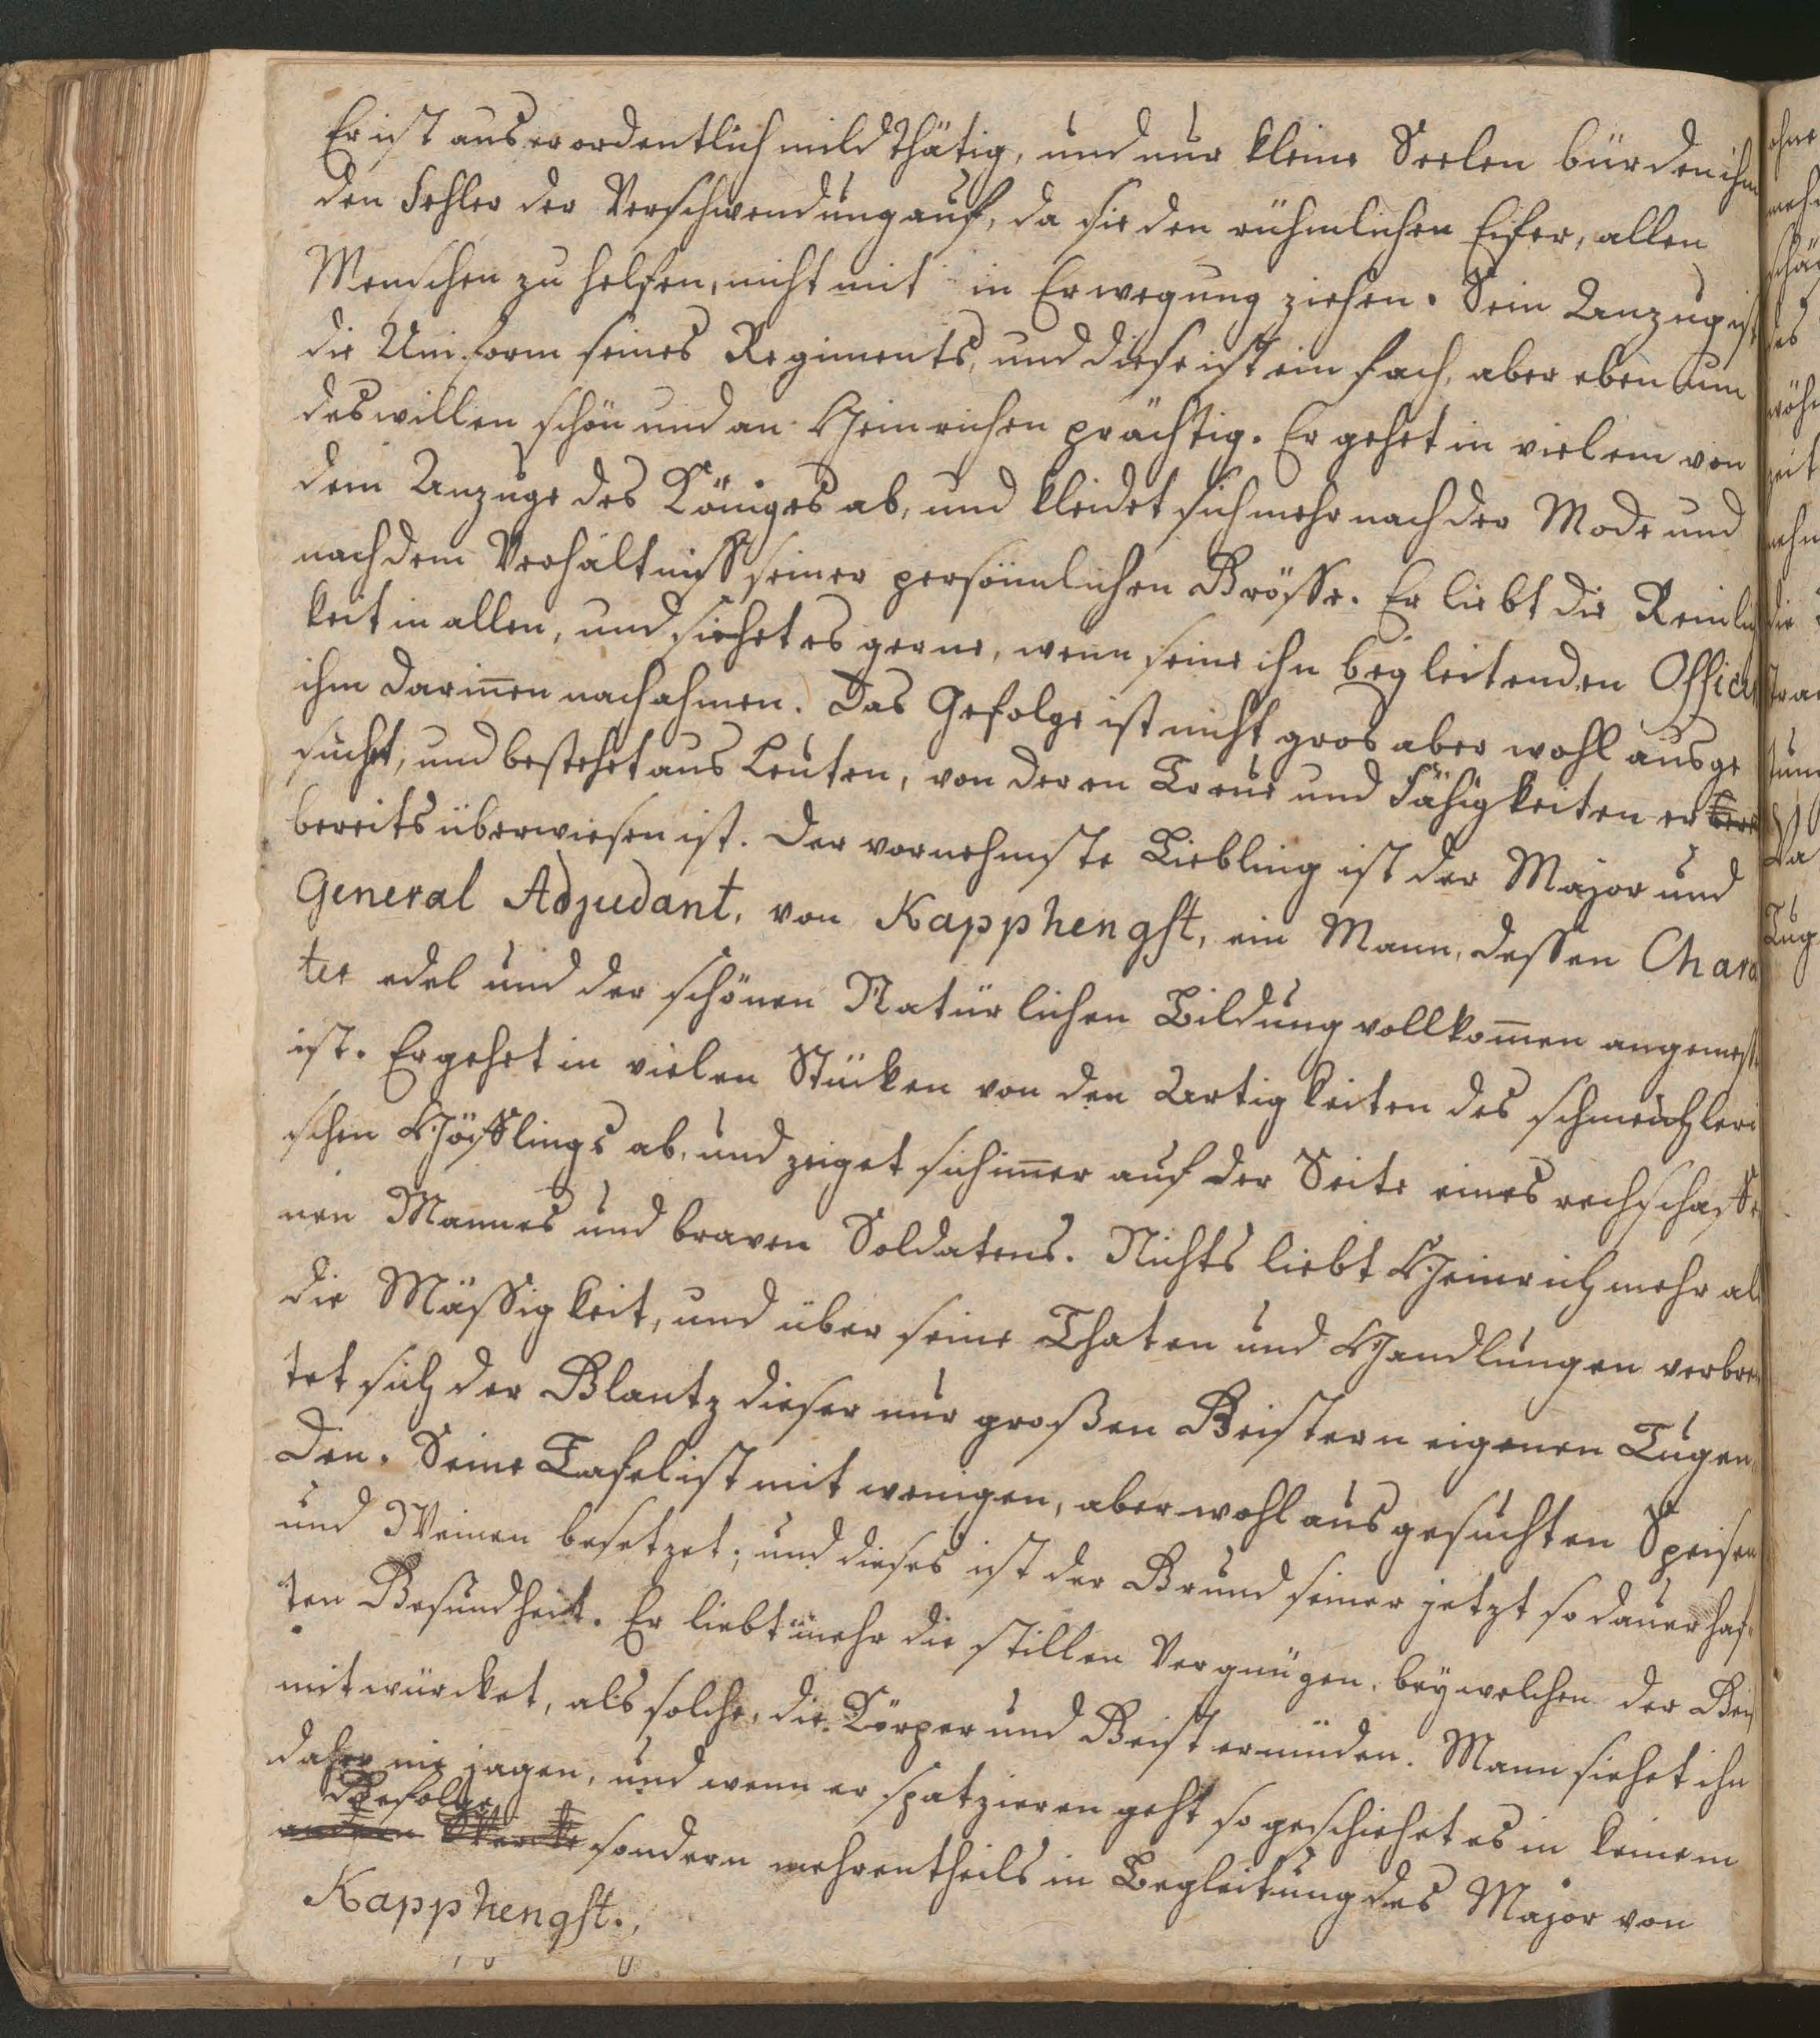 Er ist auserordentlich mildthätig, und nur kleine Seelen bürden ihm
den Fehler der Verschwendung auf, da sie den rühmlichen Eifer, allen
Menschen zu helfen, nicht mit in Erwegung ziehen. Sein Anzug ist
die Uniform seines Regiments, und diese ist einfach, aber eben um
deswillen schön und an Heinrichen prächtig. Er gehet in vielem von
dem Anzuge des Königes ab, und kleidet sich mehr nach der Mode und
nach dem Verhältniss seiner persönnlichen Grösse. Er liebt die Reinlich
keit in allen, und siehet es gerne, wenn seine ihn begleitenden Offici
ihm darinnen nachahmen. Das Gefolge ist nicht gros aber wohl ausge
sucht, und bestehet aus Leuten, von deren Treue und Fähigkeiten er
bereits überwiesen ist. Der vornehmste Liebling ist der Major und
General Adjudant, von Kapphengst, ein Mann, dessen Chara
ter edel und der schönen Natürlichen Bildung vollkom̅en angemess
ist. Er gehet in vielen Stücken von den Artigkeiten des schmeichleri
schen Höfflings ab, und zeiget sich im̅er auf der Seite eines rechschaffe
nen Mannes und braven Soldatens. Nichts liebt Heinrich mehr al
die Mässigkeit, und über seine Thaten und Handlungen verbrei
tet sich der Glantz dieser nur großen Geistern eigenen Tugen
den. Seine Tafel ist mit wenigen, aber wohl ausgesuchten Speisen
und Weinen besetzet; und dieses ist der Grund seiner jetzt so dauerhaf
ten Gesundheit. Er liebt mehr die stillen Vergnügen, bey welchen der Geis
mitwürcket, als solche, die Körper und Geist ermüden. Mann siehet ihn
daher nie jagen, und wenn er spatzieren geht so geschiehet es in keinem
Gefolge
andern sondern mehrentheils in Begleitung des Major von
Kapphengst.